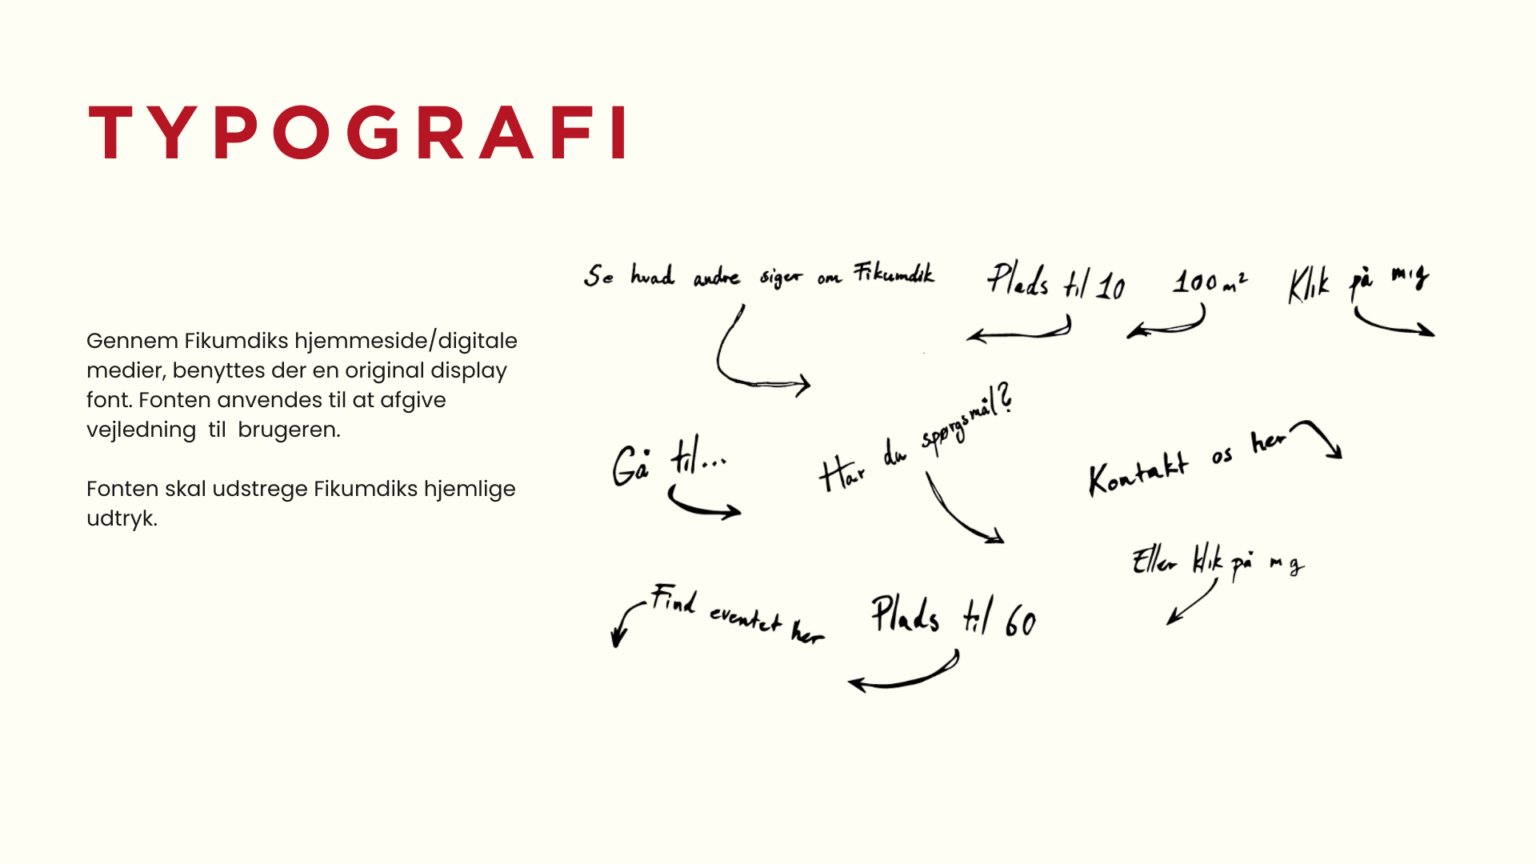 TYPOGRAFI
Gennem Fikumdiks hjemmeside/digitale
medier, benyttes der en original display
font. Fonten anvendes til at afgive
vejledning til brugeren.
Fonten skal udstrege Fikumdiks hjemlige
udtryk.
Se hvad andre siger om Fikumdik
Plads til 10
100 m²
Klik på mig
Gå til...
Har du spørgsmål?
Kontakt os her
Eller klik på mig
Find eventet her
Plads til 60